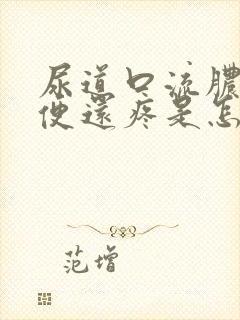 尿道口流膿
便還疼是怎
范增